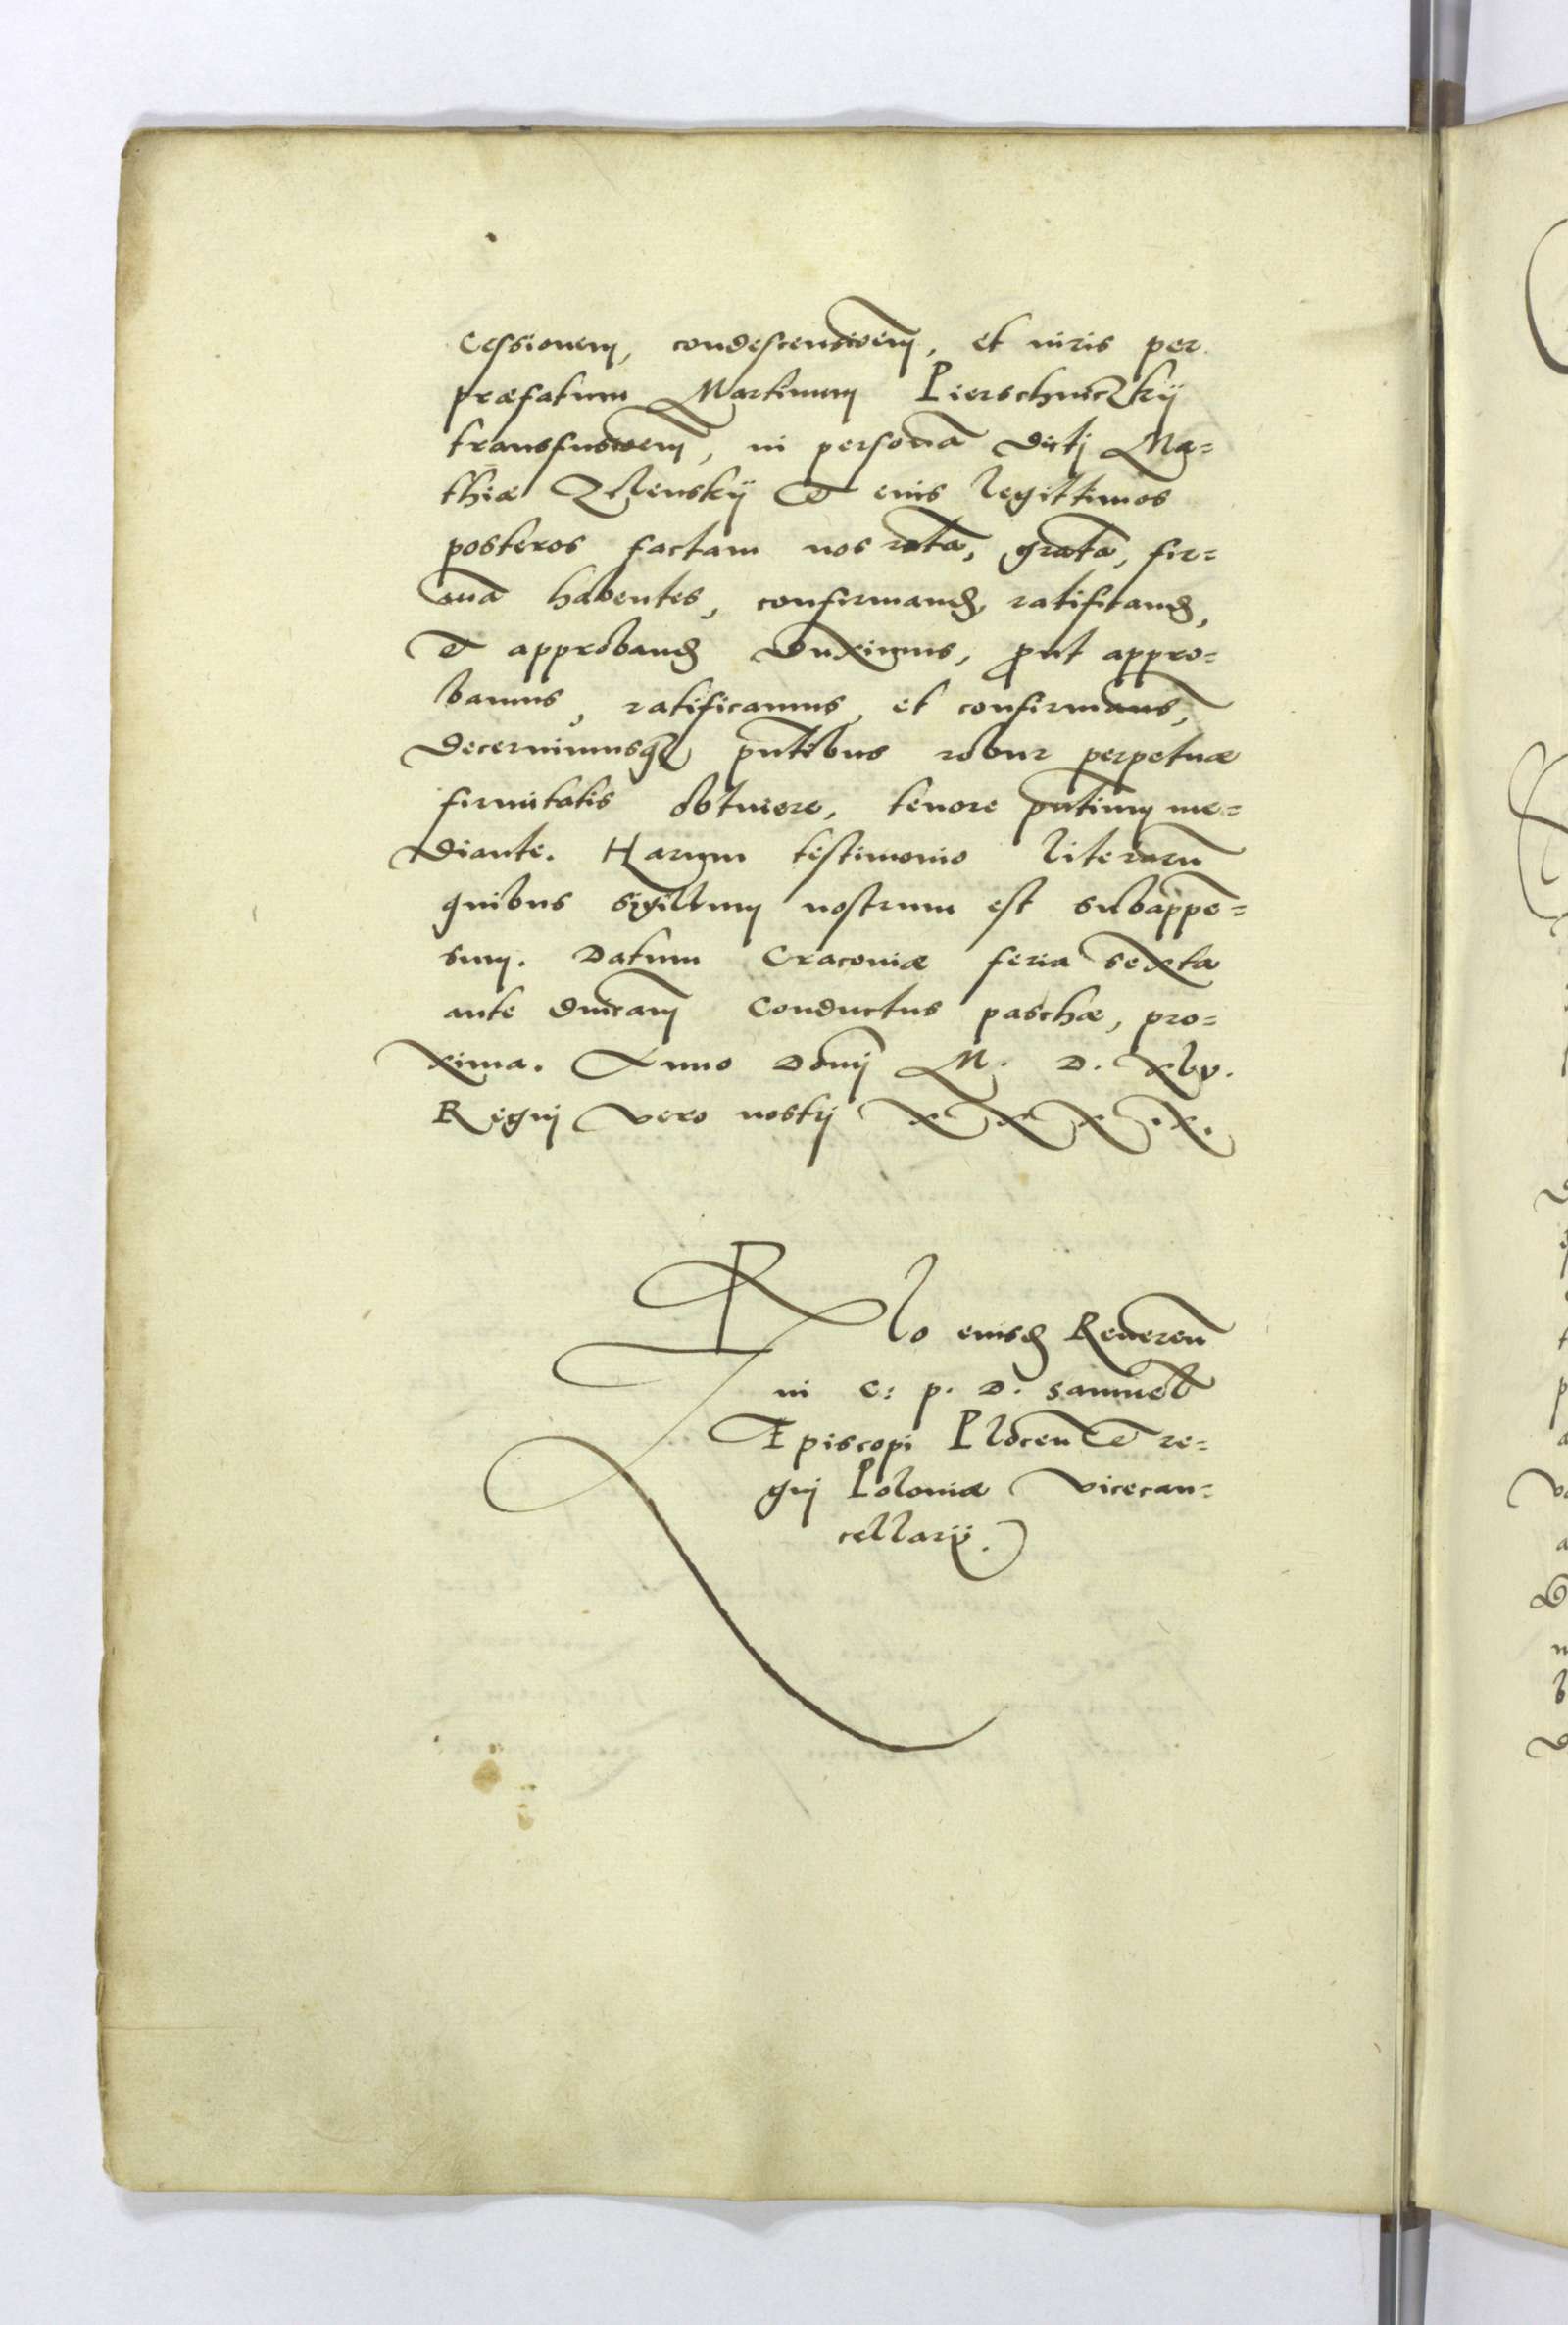 Cessionem, condescensionem, et iuris per
præfatum Martinum Pierschniczkij
transfusionem, in personā dicti Ma=
thiæ Zelenskij & eius legittimos
posteros factam nos ratā, gratā, fir=
mā habentes, confirmand, ratificand,
& approband duximus, prout appro=
bamus, ratificamus, et confirmams,
decernimusq pntibus robur perpetuæ
firmitatis obtinere, tenore pntium me=
diante. Harum testimonio literarū
quibus sigillum nostrum est subappē=
sum. Datum Cracoviæ feria sexta
ante dnicam Conductus paschæ, pro=
xima. Anno Domi M. D. xlv.
Regni vero nostri XXXIX.
Rlo eiusd Reveren
in C: p. D. Samuel
Episcopi Plocen & re=
gni Poloniæ vicecan=
cellarij.